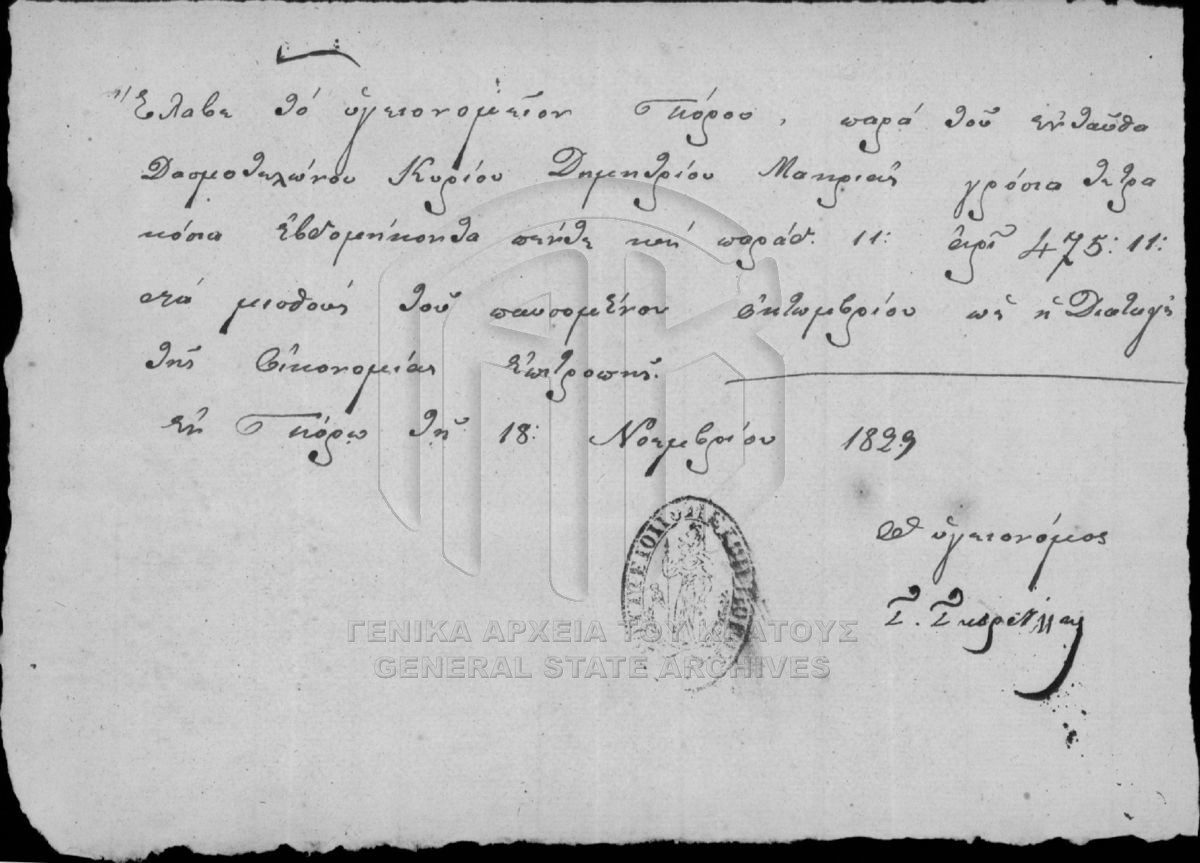 Ἔλαβε τό ὑγειονομεῖον Πόρου, παρά τοῦ ἐνταῦθα
Δασμοτελώνου Κυρίου Δημητρίου Μακριᾶς γρόσια τετρα
κόσια ἑβδομήκοντα πέντε καί παράδ. 11: ἀρ. 475:11:
διά μισθούς τοῦ παυσομένου ὀκτωμβρίου ὡς ἡ Διαταγή
τῆς Οἰκονομίας Ἐπιτροπῆς.
Ἐν Πόρῳ τῇ 18: Νοεμβρίου 1829
Ὁ ὑγειονόμος
ΓΕΝΙΚΑ ΑΡΧΕΙΑ ΤΟΥ ΚΡΑΤΟΥΣ
GENERAL STATE ARCHIVES